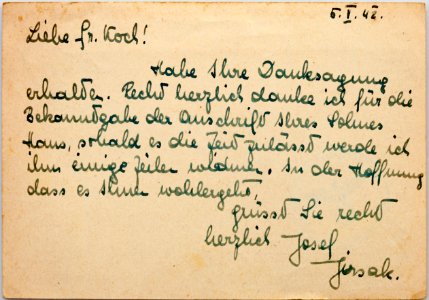 5. I. 42.
Liebe Fr. Koch!
Habe Ihre Danksagung
erhalten. Recht herzlich danke ich für die
Bekanntgabe der Anschrift Ihres Sohnes
Hans, sobald es die Zeit zulässt werde ich
ihm einige Zeilen widmen. In der Hoffnung
dass es Ihnen wohlergeht,
grüsst Sie recht
herzlich Josef
Jirsak.